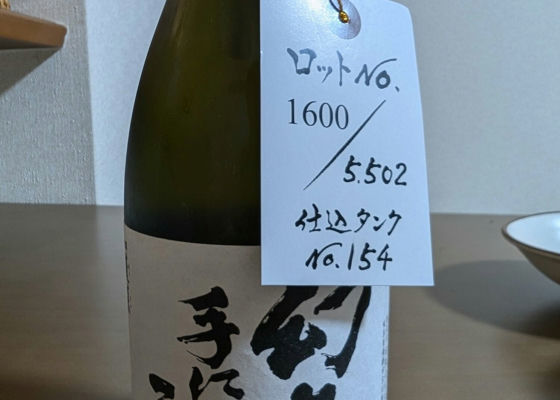 ロットNo.
1600/5.502
仕込タンク
No.154
幻
手に